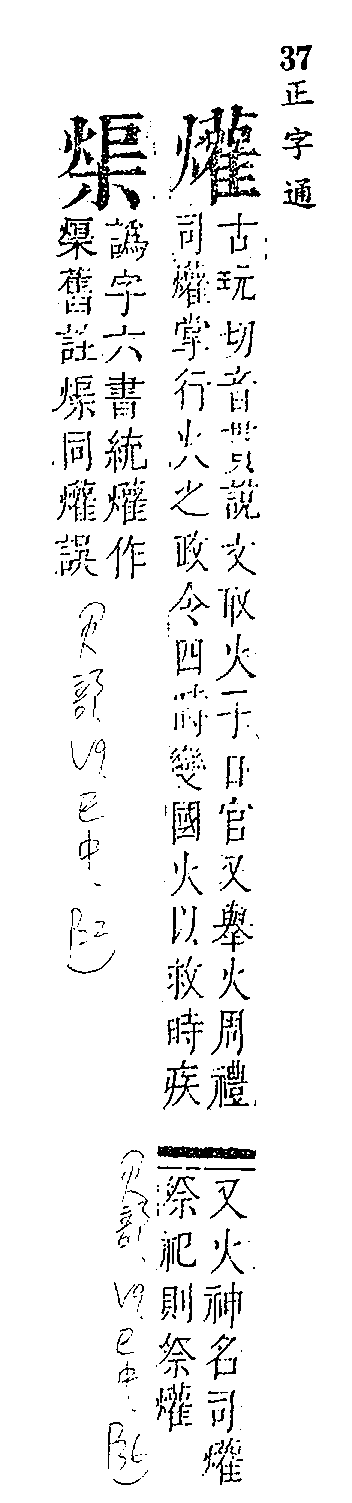 37 正字通
爟
古玩切音貫說文取火于日官又舉火周禮
司爟掌行火之政令四時變國火以救時疾
又火神名司爟
祭祀則祭爟
譌字六書統爟作
舊註同爟誤
火部、巳中、
火部、巳中、